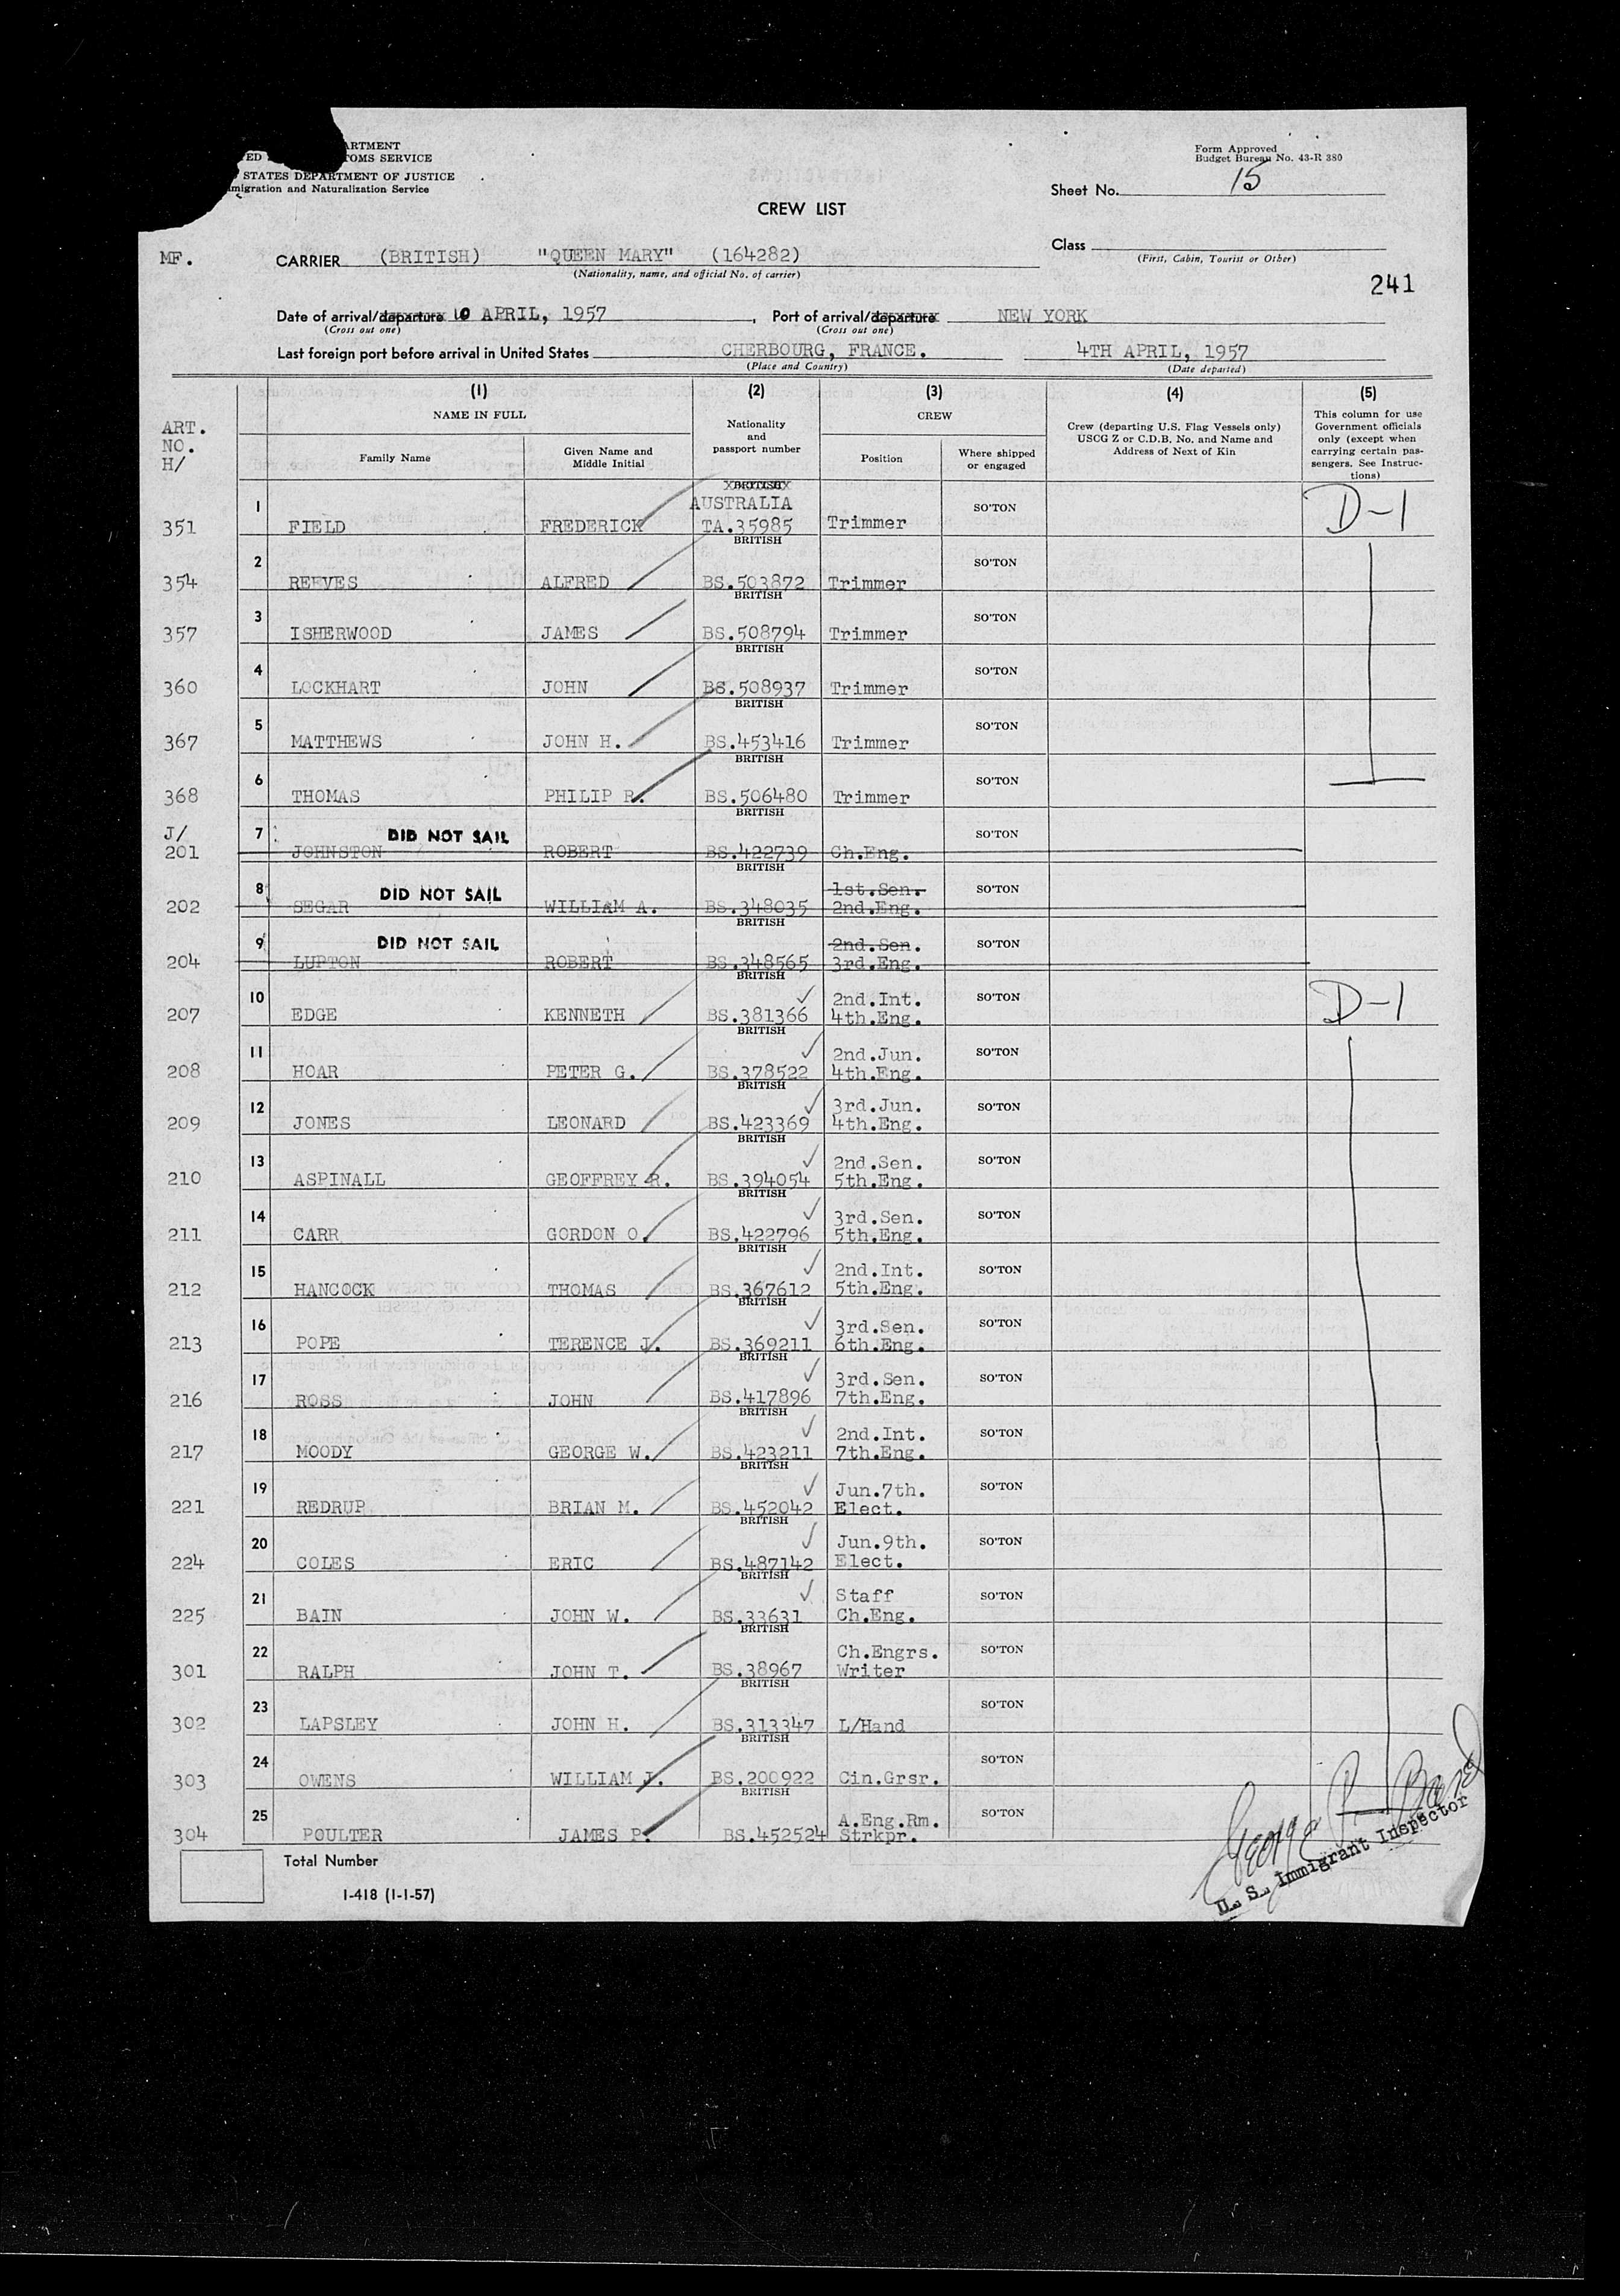 ARTMENT
TOMS SERVICE
STATES DEPARTMENT OF JUSTICE
migration and Naturalization Service
Form Approved
Budget Bureau No. 43-R 380
Sheet No. 15
CREW LIST
Class
(First, Cabin, Tourist or Other)
MF.
CARRIER (BRITISH) "QUEEN MARY" (164282)
(Nationality, name, and official No. of carrier)
241
Date of arrival/departure APRIL, 1957, Port of arrival/departure NEW YORK
(Cross out one) (Cross out one)
Last foreign port before arrival in United States CHERBOURG, FRANCE. 4TH APRIL, 1957
(Place and Country) (Date departed)
ART. NO. H/
(1) NAME IN FULL
Family Name
Given Name and Middle Initial
(2) Nationality and passport number
(3) CREW
Position
Where shipped or engaged
(4) Crew (departing U.S. Flag Vessels only) USCG Z or C.D.B. No. and Name and Address of Next of Kin
(5) This column for use Government officials only (except when carrying certain passengers. See Instructions)
351 1 FIELD FREDERICK BRITISH AUSTRALIA TA.35985 Trimmer SO'TON D-1
354 2 REEVES ALFRED BRITISH BS.503872 Trimmer SO'TON
357 3 ISHERWOOD JAMES BRITISH BS.508794 Trimmer SO'TON
360 4 LOCKHART JOHN BRITISH BS.508937 Trimmer SO'TON
367 5 MATTHEWS JOHN H. BRITISH BS.453416 Trimmer SO'TON
368 6 THOMAS PHILIP R. BRITISH BS.506480 Trimmer SO'TON
J/ 201 7 DID NOT SAIL JOHNSTON ROBERT BRITISH BS.422739 Ch.Eng. SO'TON
202 8 DID NOT SAIL SEGAR WILLIAM A. BRITISH BS.348035 1st.Sen. 2nd.Eng. SO'TON
204 9 DID NOT SAIL LUPTON ROBERT BRITISH BS.348565 2nd.Sen. 3rd.Eng. SO'TON
207 10 EDGE KENNETH BRITISH BS.381366 2nd.Int. 4th.Eng. SO'TON D-1
208 11 HOAR PETER G. BRITISH BS.378522 2nd.Jun. 4th.Eng. SO'TON
209 12 JONES LEONARD BRITISH BS.423369 3rd.Jun. 4th.Eng. SO'TON
210 13 ASPINALL GEOFFREY R. BRITISH BS.394054 2nd.Sen. 5th.Eng. SO'TON
211 14 CARR GORDON O. BRITISH BS.422796 3rd.Sen. 5th.Eng. SO'TON
212 15 HANCOCK THOMAS BRITISH BS.367612 2nd.Int. 5th.Eng. SO'TON
213 16 POPE TERENCE J. BRITISH BS.369211 3rd.Sen. 6th.Eng. SO'TON
216 17 ROSS JOHN BRITISH BS.417896 3rd.Sen. 7th.Eng. SO'TON
217 18 MOODY GEORGE W. BRITISH BS.423211 2nd.Int. 7th.Eng. SO'TON
221 19 REDRUP BRIAN M. BRITISH BS.452042 Jun.7th. Elect. SO'TON
224 20 COLES ERIC BRITISH BS.487142 Jun.9th. Elect. SO'TON
225 21 BAIN JOHN W. BRITISH BS.33631 Staff Ch.Eng. SO'TON
301 22 RALPH JOHN T. BRITISH BS.38967 Ch.Engrs. Writer SO'TON
302 23 LAPSLEY JOHN H. BRITISH BS.313347 L/Hand SO'TON
303 24 OWENS WILLIAM J. BRITISH BS.200922 Cin.Grsr. SO'TON
304 25 POULTER JAMES P. BRITISH BS.452524 A.Eng.Rm. Strkpr. SO'TON
Total Number
I-418 (1-1-57)
George
U. S. Immigrant Inspector